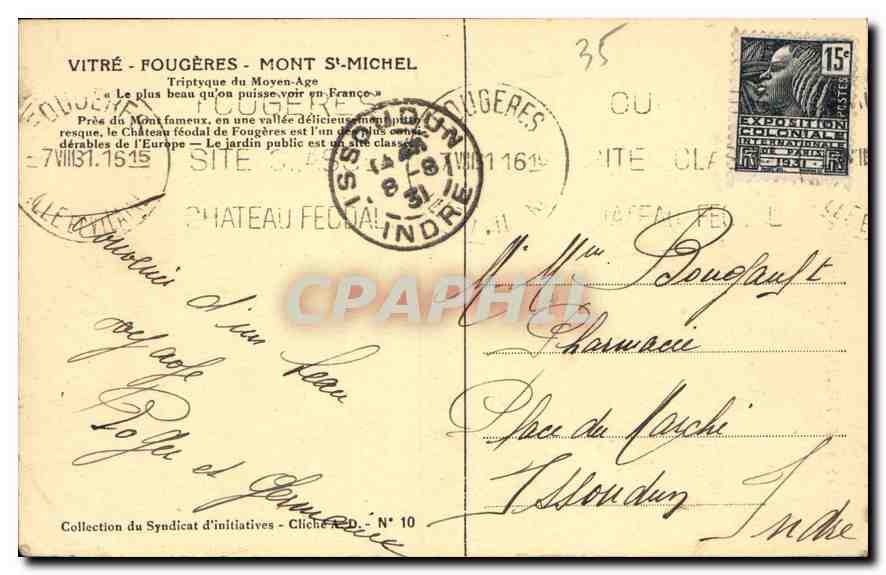 VITRÉ - FOUGÈRES - MONT St-MICHEL
Triptyque du Moyen-Age
« Le plus beau qu'on puisse voir en France »
Près du Mont fameux, en une vallée délicieusement pitto-
resque, le Château féodal de Fougères est l'un des plus consi-
dérables de l'Europe — Le jardin public est un site classé
35
15c
POSTES
EXPOSITION
COLONIALE
INTERNATIONALE
DE PARIS
1931
FOUGERES
7 VIII 31 16 15
ILLE
FOUGERES
SITE CLAS
CHATEAU FEODAL
ISSOUDUN
8 31
INDRE
FOUGERES
7 VIII 31 16 15
OU
SITE CLAS
CHATEAU FEODAL
Souvenir
d'un beau
voyage
Roger et Germaine
M. Mme Bougault
Pharmacie
Place du Marché
Issoudun
Indre
CPAPHIL
Collection du Syndicat d'initiatives - Cliché A. D. - N° 10